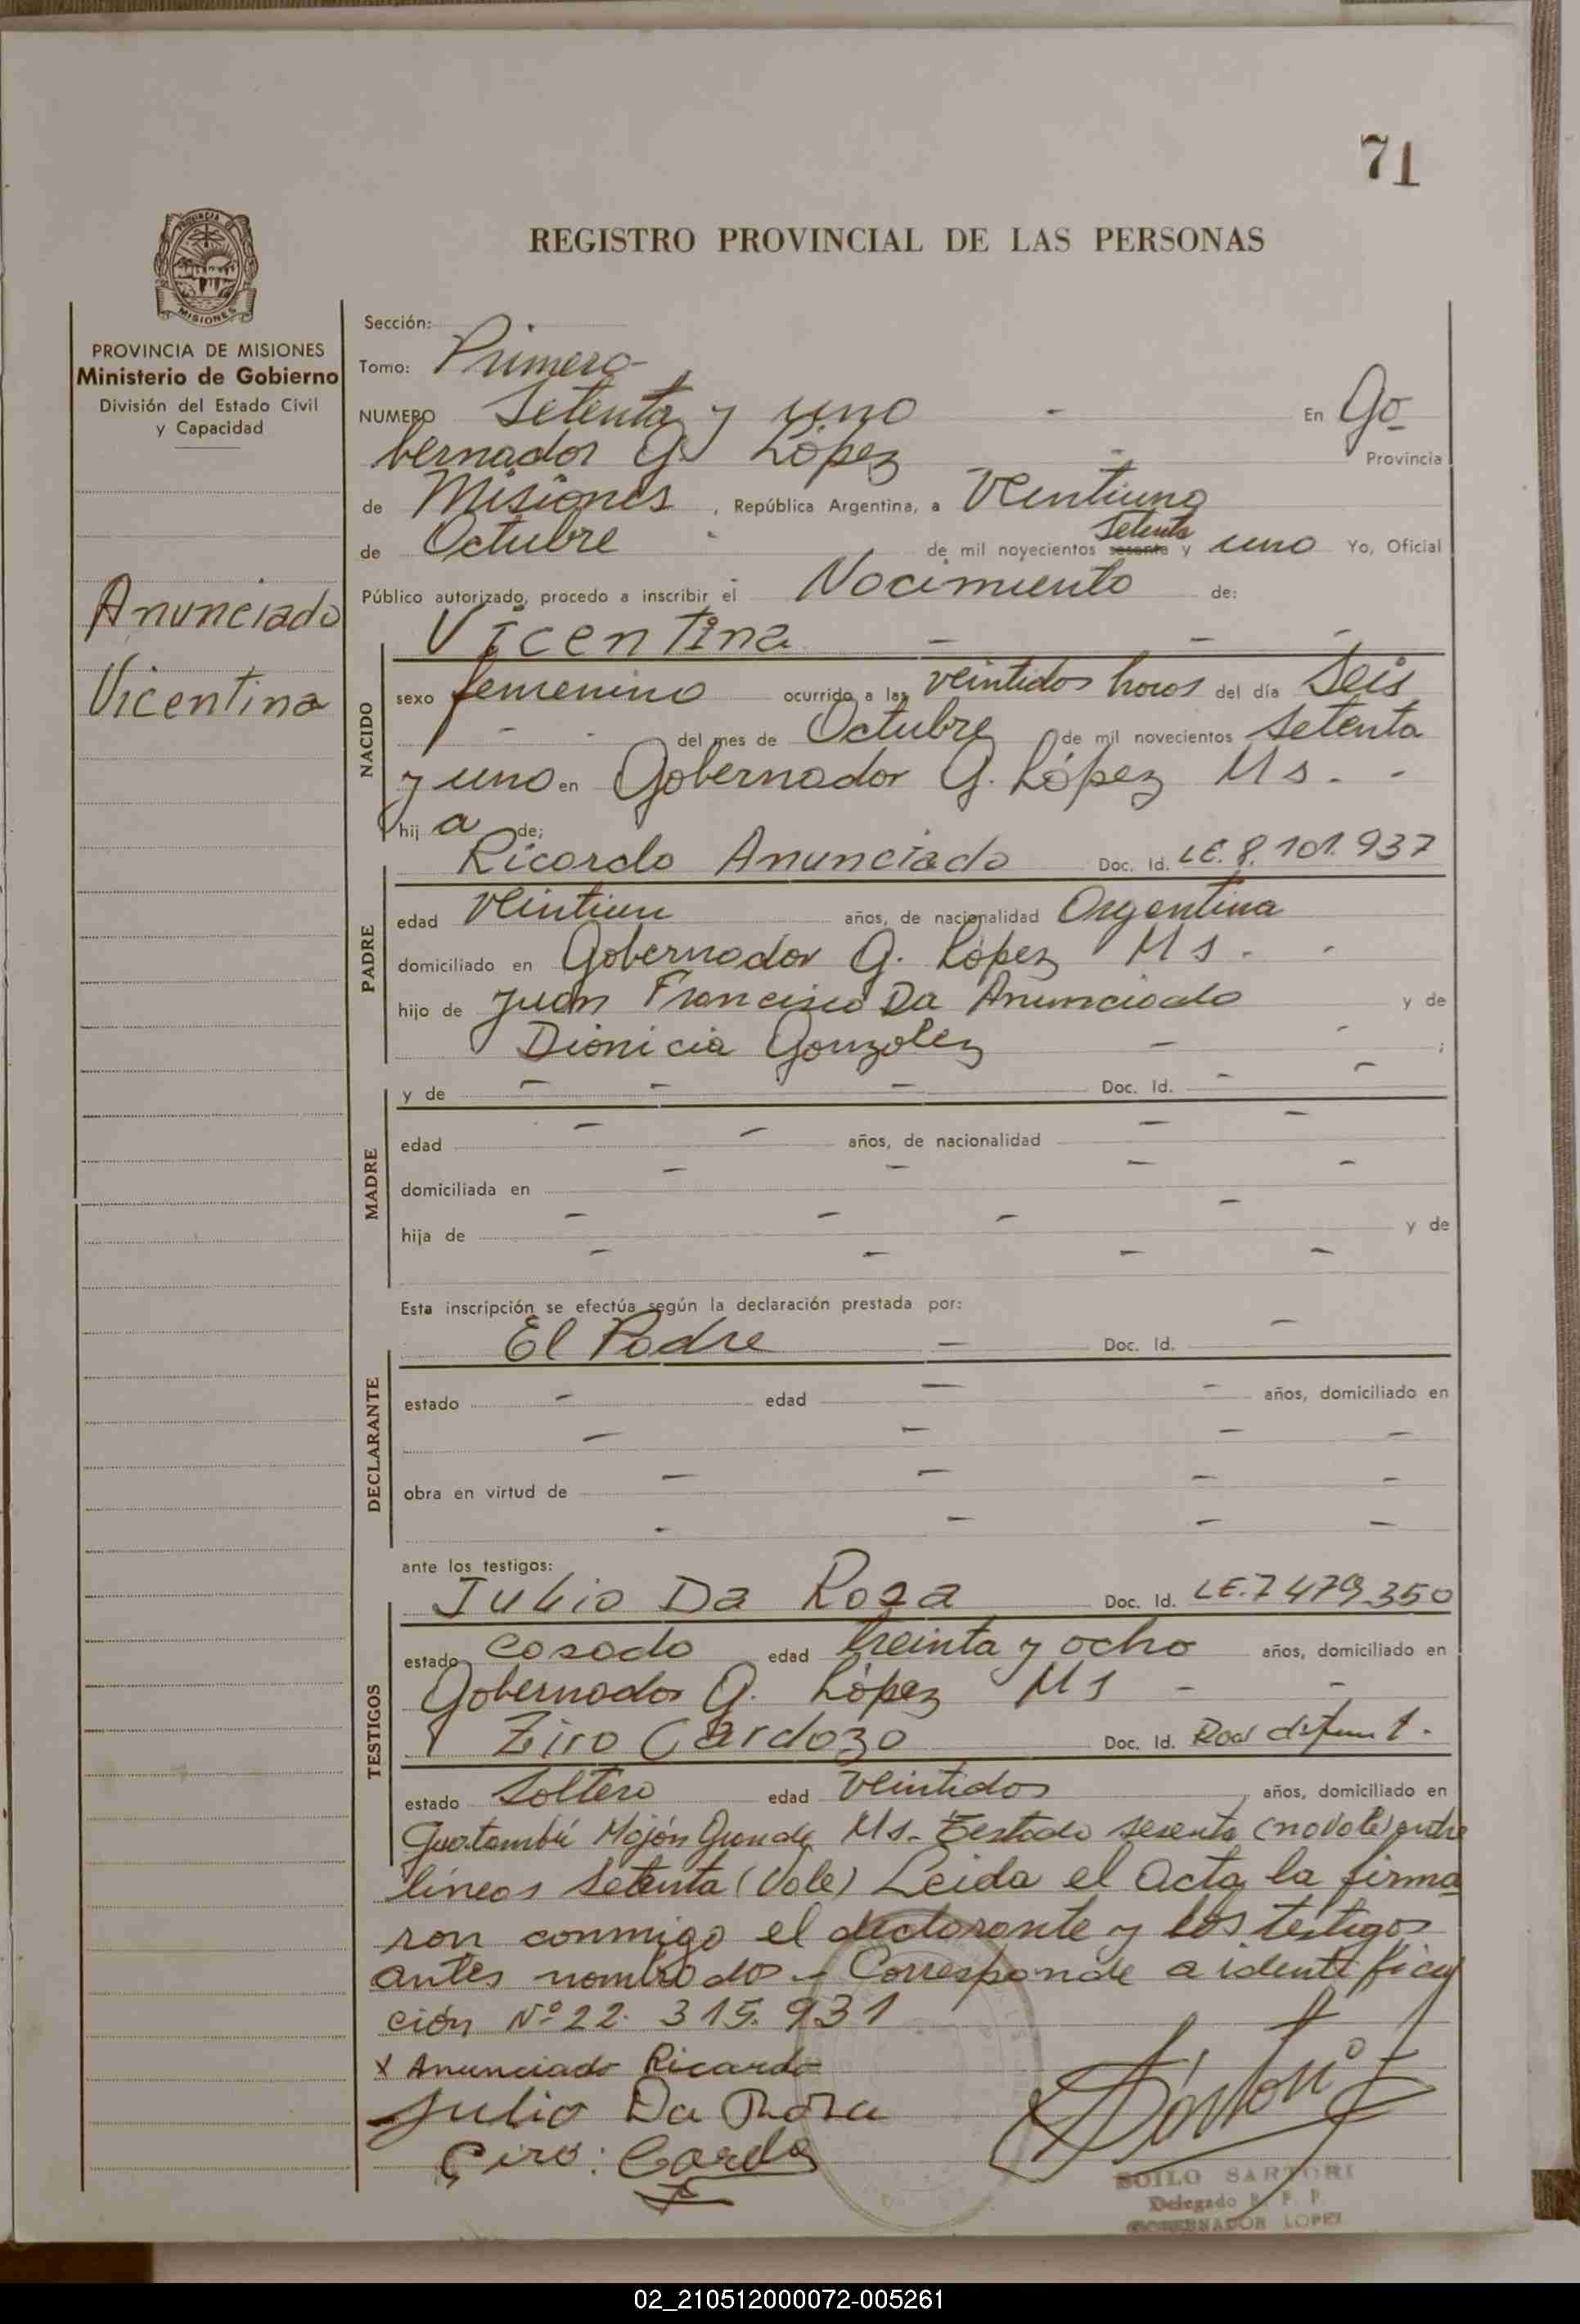 71
REGISTRO PROVINCIAL DE LAS PERSONAS
MISIONES
PROVINCIA DE MISIONES
Ministerio de Gobierno
División del Estado Civil
y Capacidad
Anunciado
Vicentina
Sección:
Tomo: Primero-
NUMERO Setenta y uno - En Go-
bernador G. López - Provincia
de Misiones, República Argentina, a Veintiuno
de Octubre de mil novecientos sesenta Setenta y uno Yo, Oficial
Público autorizado, procedo a inscribir el Nacimiento de:
Vicentina - - -
NACIDO
sexo femenino ocurrido a las veintidos horas del día Seis
- - del mes de Octubre de mil novecientos Setenta
y uno en Gobernador G. López Ms. -
hij a de;
Ricardo Anunciado Doc. Id. LE. 8. 101. 937
PADRE
edad Veintiun años, de nacionalidad Argentina
domiciliado en Gobernador G. López Ms - -
hijo de Juan Francisco Da Anunciado y de
Dionicia Gonzalez - - ;
MADRE
y de - - - Doc. Id. - -
edad - - años, de nacionalidad - -
domiciliada en - - - -
hija de - - - - y de
- - - -
Esta inscripción se efectúa según la declaración prestada por:
El Padre - Doc. Id. -
DECLARANTE
estado - edad - - años, domiciliado en
- - - -
obra en virtud de - - - -
- - - -
ante los testigos:
Julio Da Rosa Doc. Id. LE. 7 479.350
TESTIGOS
estado casado edad treinta y ocho años, domiciliado en
Gobernador G. López Ms - -
y Ziro Cardozo Doc. Id.
estado Soltero edad Veintidos años, domiciliado en
Guatambú Mojón Grande Ms. Testado sesenta (no vale) entre
líneas Setenta (Vale) Leida el Acta la firma
ron conmigo el declarante y los testigos
antes nombrados - Corresponde a identifica
ción Nº 22. 315. 931
x Anunciado Ricardo
Julio Da Rosa
Ciro: Cardo
SOILO SARTORI
Delegado R. P. P.
GOBERNADOR LOPEZ
02_210512000072-005261